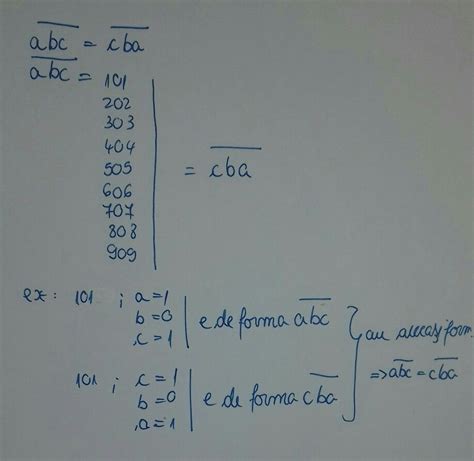 abc = cba
abc = 101
202
303
404
505
606
707
808
909
= cba
ex: 101 ; a=1
b=0
c=1
e de forma abc
101 ; c=1
b=0
a=1
e de forma cba
au aceeași form.
=> abc = cba